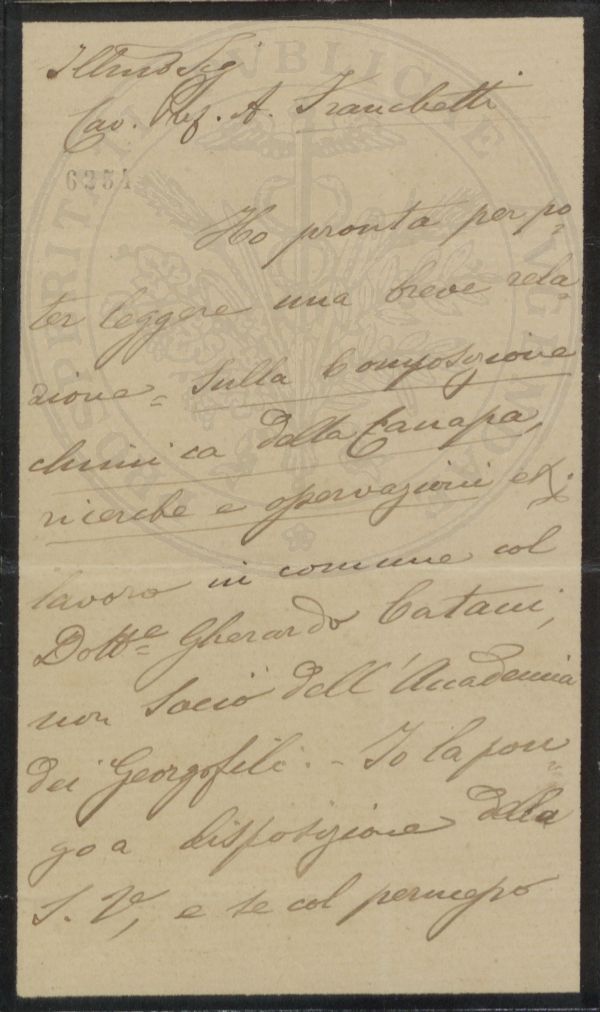 Illmo Sig
Cav. Prof. A. Franchetti
6254
Ho pronta per po=
ter leggere una breve rela=
zione = Sulla Composizione
chimica della Canapa,
ricerche e osservazioni etc.
lavoro in comune col
Dott.e Gherardo Catani,
non Socio dell'Accademia
dei Georgofili. - Io la pon=
go a disposizione della
S. V., e se col permesso
PROSPERITATI PUBLICAE AUGENDAE